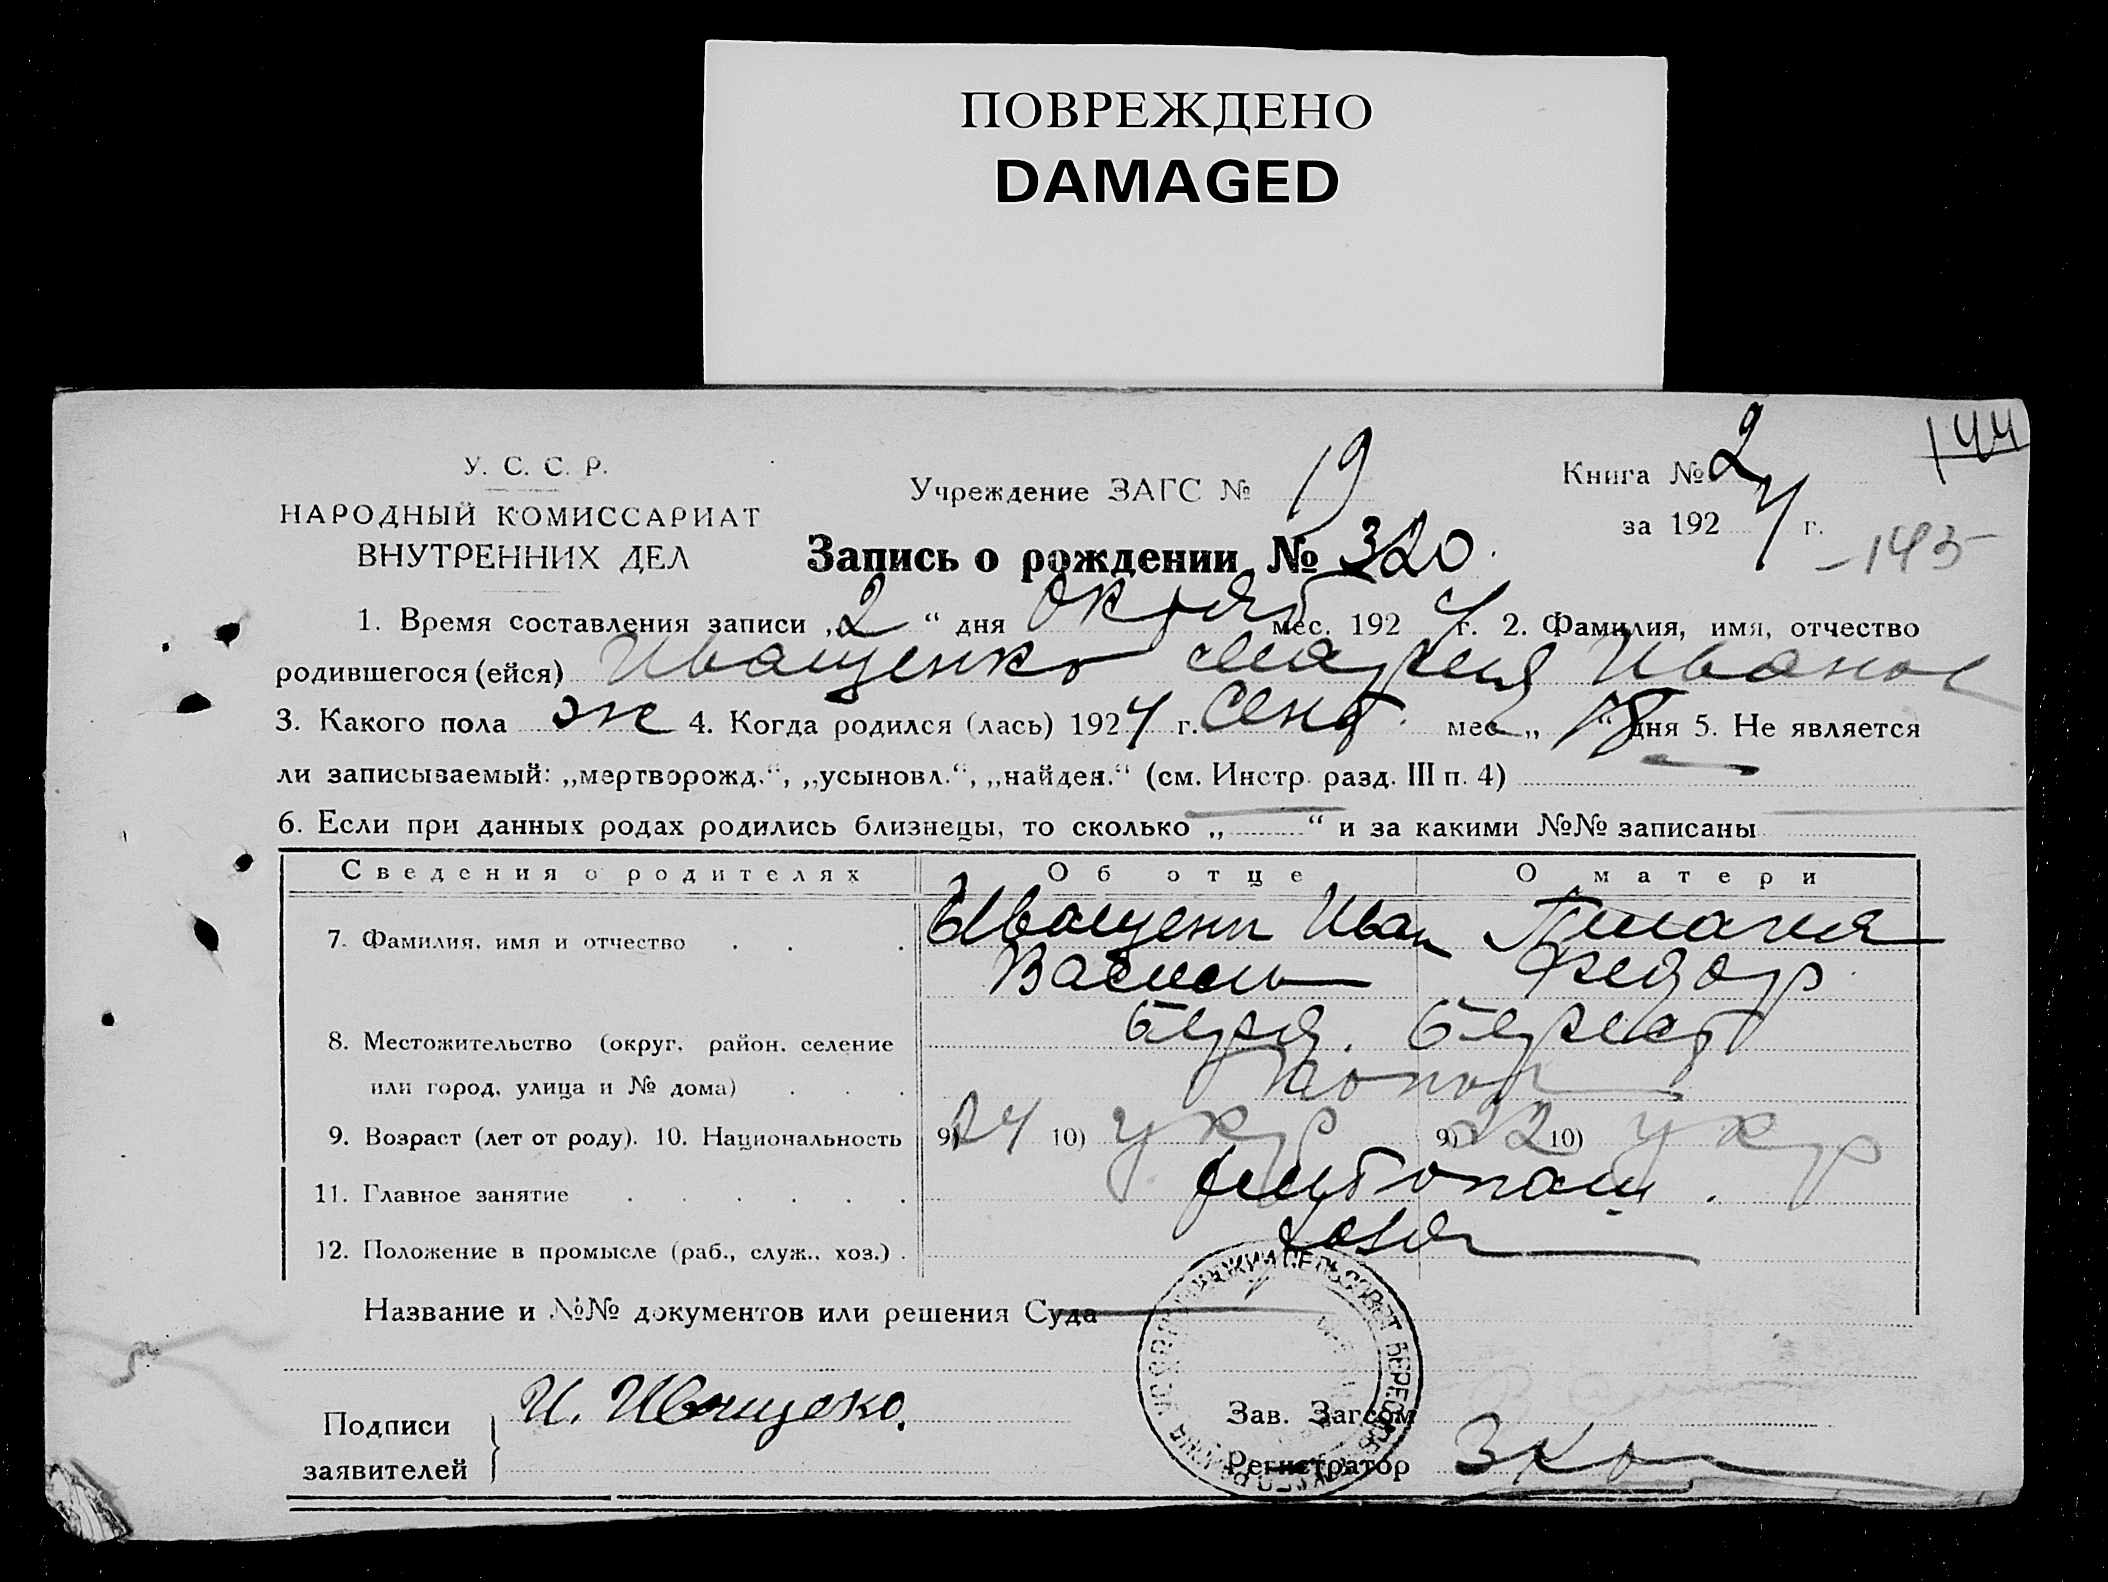 ПОВРЕЖДЕНО
DAMAGED
144
У. С. С. Р.
НАРОДНЫЙ КОМИССАРИАТ
ВНУТРЕННИХ ДЕЛ
Учреждение ЗАГС № 19
Книга № 2
за 1924 г.
-145
Запись о рождении № 320
1. Время составления записи „2“ дня Октяб мес. 1924 г. 2. Фамилия, имя, отчество
родившегося (ейся) Иващенко Мария Иванов
3. Какого пола ж 4. Когда родился (лась) 1924 г. Сент. мес. „18“ дня 5. Не является
ли записываемый: „мертворожд.“, „усыновл.“, „найден.“ (см. Инстр. разд. III п. 4)
6. Если при данных родах родились близнецы, то сколько „ “ и за какими №№ записаны
Сведения о родителях Об отце О матери
7. Фамилия, имя и отчество Иващенк Иван
Василь Федор
8. Местожительство (округ, район, селение
или город, улица и № дома)
9. Возраст (лет от роду). 10. Национальность 9) 24 10) укр 9) 22 10) укр
11. Главное занятие хлебопаш.
12. Положение в промысле (раб., служ., хоз.) хозя
Название и №№ документов или решения Суда
СЕЛЬСОВЕТ
Подписи
заявителей
И. Иващеко.
Зав. Загсом
Регистратор